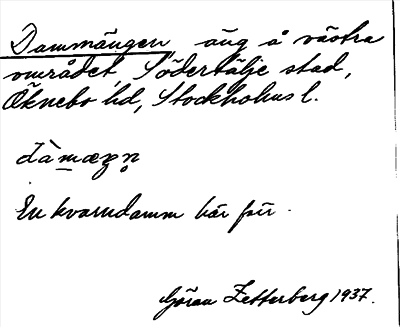 Dammängen äng å västra
området, Södertälje stad,
Öknebo hd, Stockholms l.
En kvarndamm här förr.
Göran Zetterberg 1937.